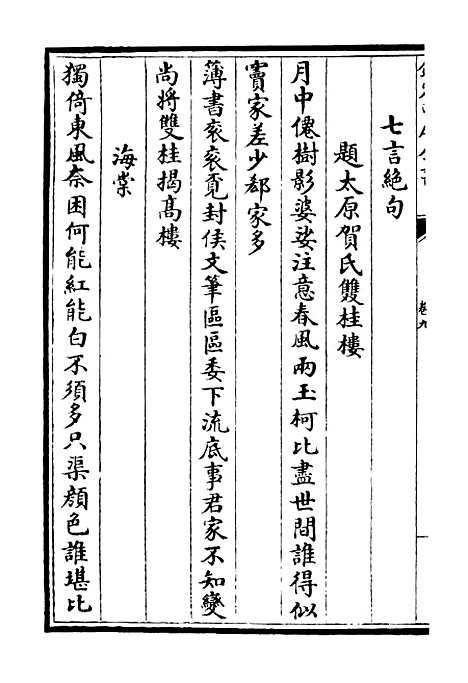 七言絶句
題太原賀氏雙桂樓
月中僊樹影婆娑注意春風兩玉柯比盡世間誰得似
竇家差少郄家多
薄書衮衮覓封侯文筆區區委下流底事君家不知變
尚將雙桂揭高樓
海棠
獨倚東風奈困何能紅能白不須多只渠顔色誰堪比
卷九